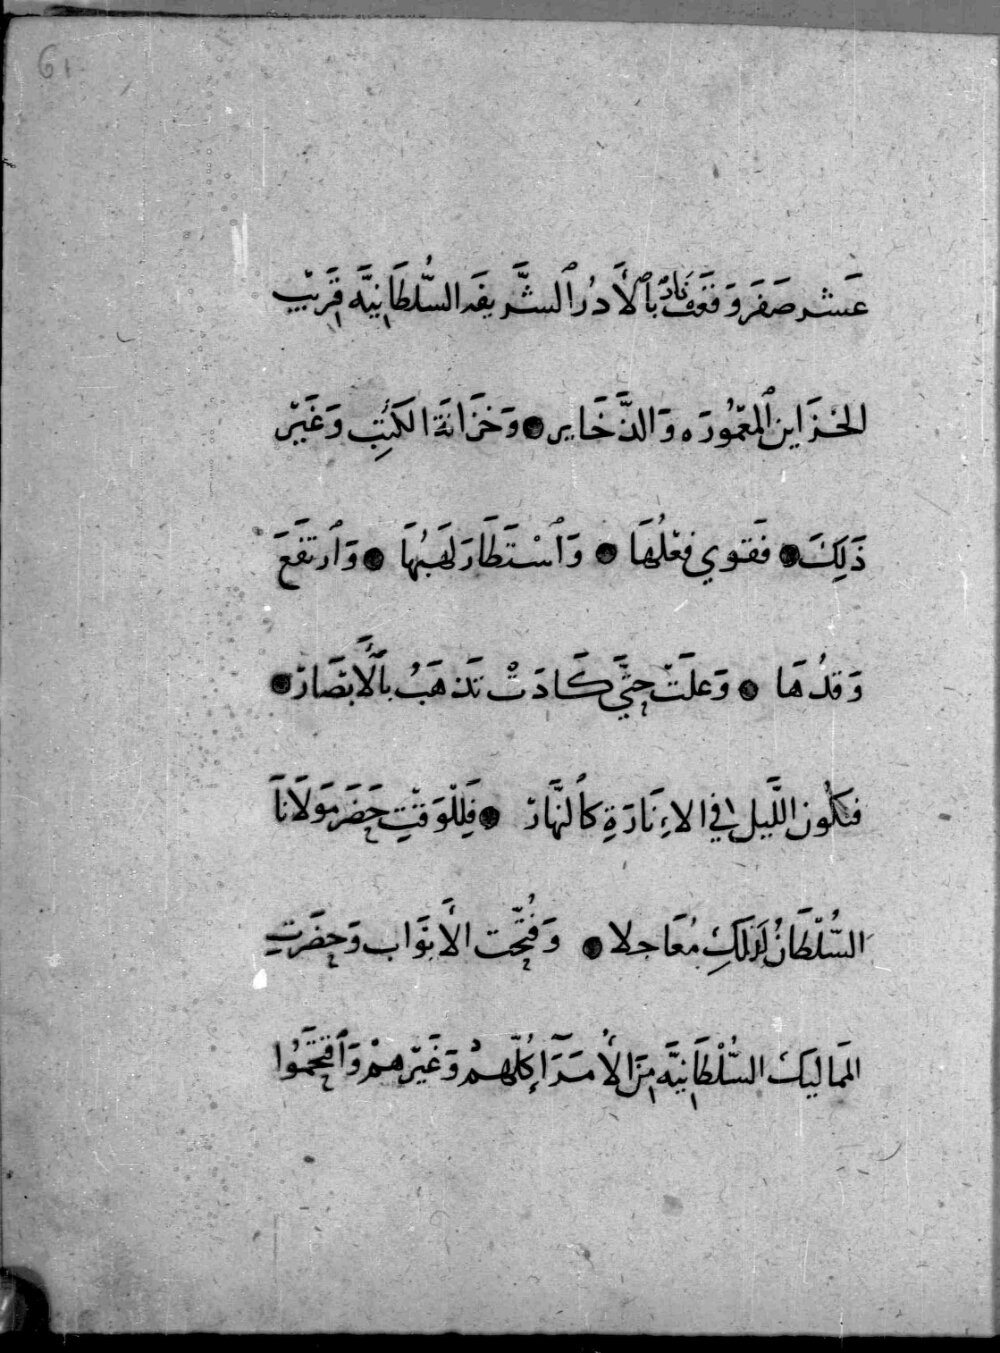 61
عَشر صَفَرَ وَقعَت نَارٌ بِٱلأَدُر ٱلشَّريفَه السُّلطَانِيَّه قَرِيْب
الخزَاين ٱلمَعْمُورَه وَالذَّخَاير ● وَخزَانَة الكتُبِ وَغَيْر
ذَلِكَ ● فَقوي فعْلُهَا ● وَٱسْتَطَارَ لَهَبُهَا ● وَٱرتفَعَ
وَقدُهَا ● وَعلَتْ حتَّي كَادَتْ تَذهَبُ بالأَبْصَارْ ●
فتكون اللَّيل في الاءِنَارَةِ كالنهَّارْ ● فَلِلْوَقْتِ حَضَرَ مَولَانَا
السُّلْطَانُ لِذَلَكِ مُعَاجلا ● وَفُتِّحت الأَبْوَاب وَحضَرَتِ
المَماليَك السُّلْطَانِيَّه مِنَ الأُمَرَآءِ كُلّهمْ وَغَيْرهمْ وَٱقتحَمُوا